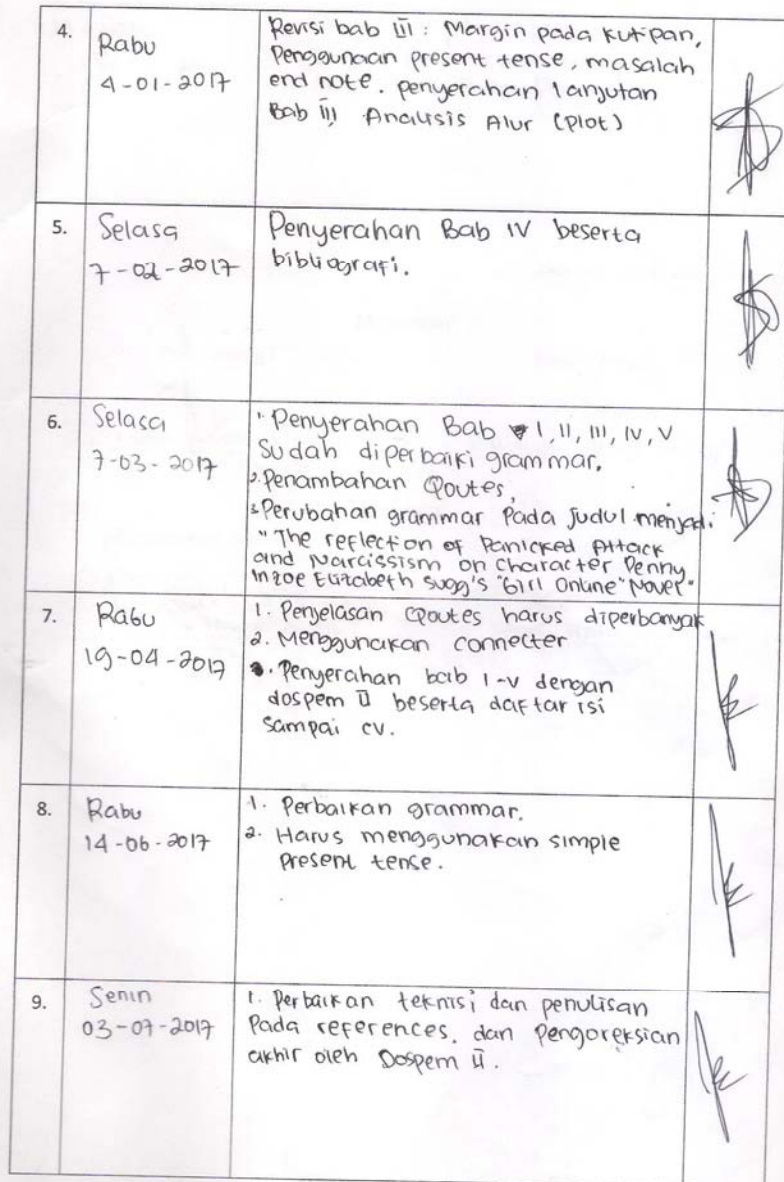 4.
Rabu
4-01-2017
Revisi bab III : Margin pada kutipan,
Penggunaan present tense, masalah
end note. penyerahan lanjutan
Bab III Analisis Alur (Plot)
5.
Selasa
7-02-2017
Penyerahan Bab IV beserta
bibliografi.
6.
Selasa
7-03-2017
1. Penyerahan Bab I, II, III, IV, V
Sudah diperbaiki grammar.
2. Penambahan Qoutes,
3. Perubahan grammar Pada Judul menjadi
"The reflection of Panicked Attack
and Narcissism on Character Penny
In Zoe Elizabeth Sugg's "Girl Online" Novel"
7.
Rabu
19-04-2017
1. Penjelasan Qoutes harus diperbanyak
2. Menggunakan connecter
3. Penyerahan bab I-V dengan
dospem II beserta daftar isi
Sampai cv.
8.
Rabu
14-06-2017
1. Perbaikan grammar.
2. Harus menggunakan simple
Present tense.
9.
Senin
03-07-2017
1. Perbaikan teknisi dan penulisan
Pada references. dan Pengoreksian
akhir oleh Dospem II.